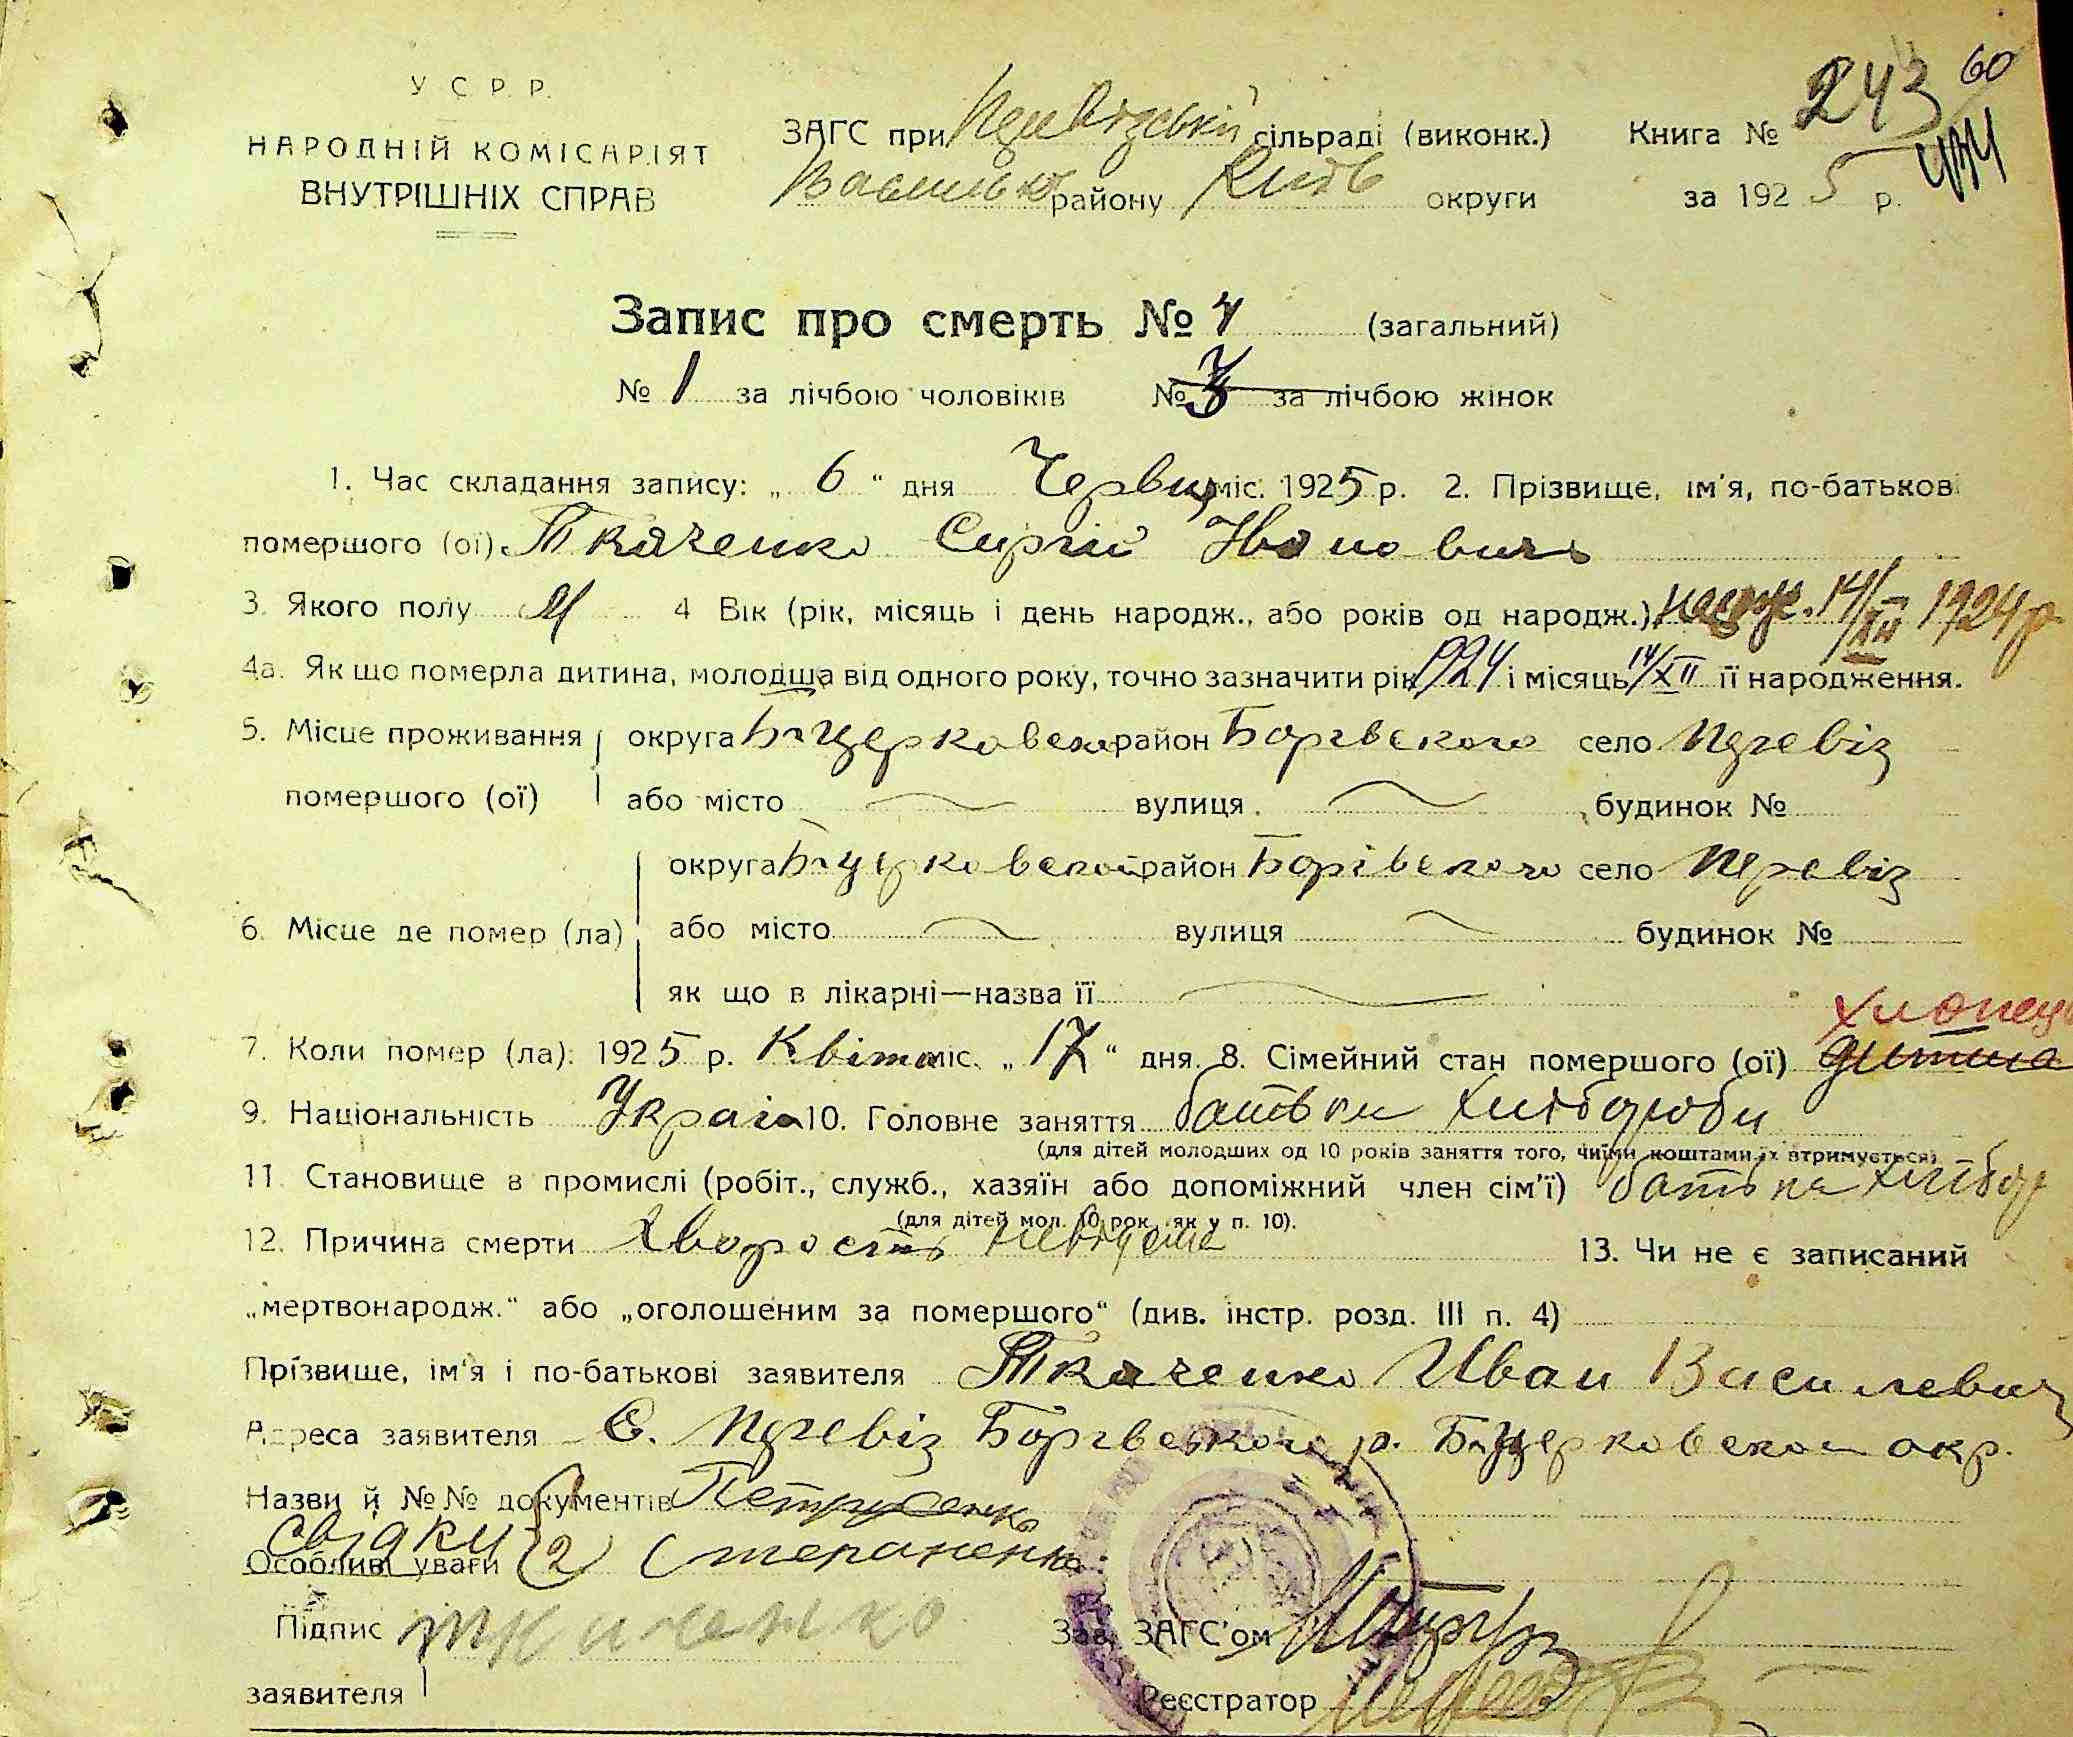 У С Р Р.
НАРОДНІЙ КОМІСАРІЯТ
ВНУТРІШНІХ СПРАВ
ЗАГС при сільраді (виконк.)
Васильк району Київ округи
Книга № 243 60
за 1925 р.
Запис про смерть № 4 (загальний)
№ 1 за лічбою чоловіків № 3 за лічбою жінок
1. Час складання запису: „ 6 “ дня Червця міс. 1925 р. 2. Прізвище, ім'я, по-батькові
помершого (ої) Ткаченко Сиргій Иванович
3. Якого полу М 4 Вік (рік, місяць і день народж., або років од народж.) 14/XII 1924 р
4а. Як що померла дитина, молодша від одного року, точно зазначити рік 1924 і місяць 14/XII її народження.
5. Місце проживання округа Б-Церковської район Борівского село Перевіз
помершого (ої) або місто вулиця будинок №
округа Б-Церковської район Борівского село Перевіз
6. Місце де помер (ла) або місто вулиця будинок №
як що в лікарні—назва її
хлопець
7. Коли помер (ла): 1925 р. Квітня міс. „ 17 “ дня. 8. Сімейний стан помершого (ої) дитина
9. Національність Украін 10. Головне заняття батьки хлібороби
(для дітей молодших од 10 років заняття того, чиїми коштами їх втримується)
11. Становище в промислі (робіт., служб., хазяїн або допоміжний член сім'ї) батьки хлібор
(для дітей мол. 10 рок. як у п. 10).
12. Причина смерти Хворость невідома 13. Чи не є записаний
„мертвонародж.“ або „оголошеним за помершого“ (див. інстр. розд. III п. 4)
Прізвище, ім'я і по-батькові заявителя Ткаченко Иван Василевич
Адреса заявителя С. Перевіз Борівского р. Б-Церковскои окр.
Назви й №№ документів Петрусенко
свідки
Особливі уваги 2) Степаненко
Підпис Ткаченко
заявителя
Зав. ЗАГС'ом
Реєстратор